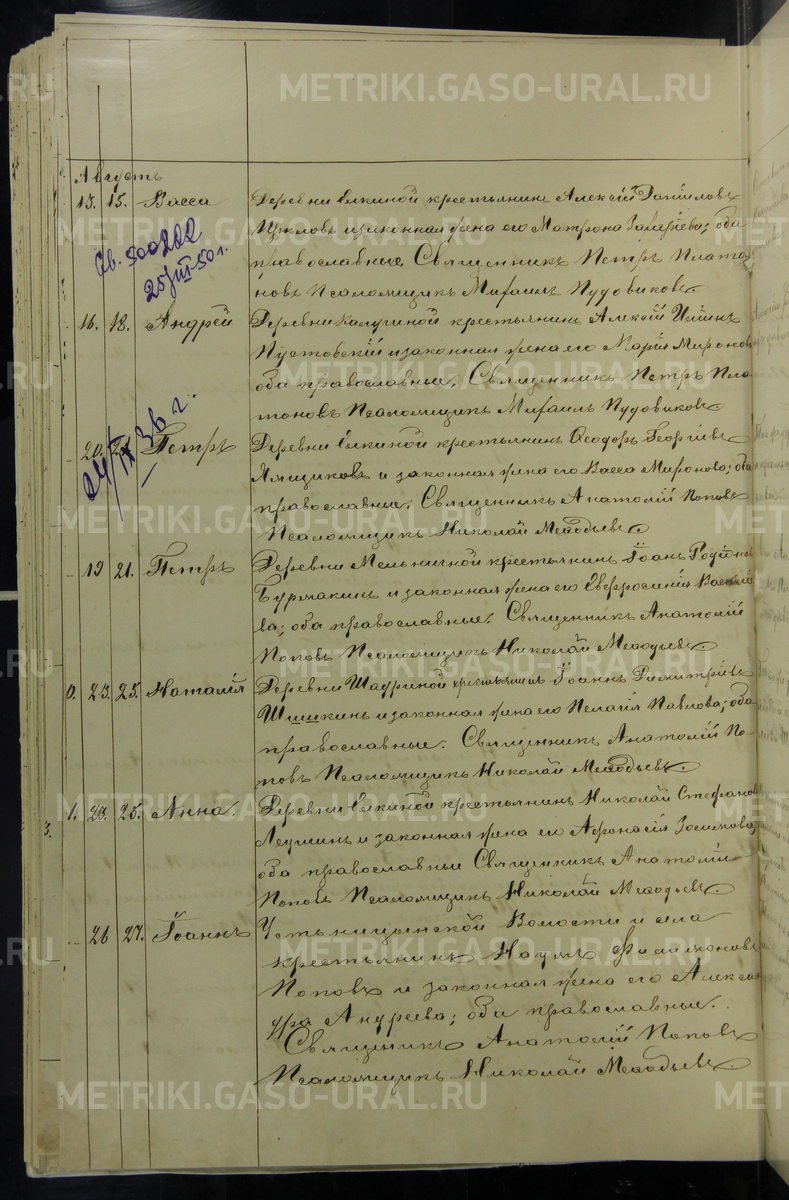 Августъ
13. 15. Васса Деревни Елкиной крестьянинъ Алексѣй Даніиловъ
и законная жена его Матрона оба
православные. Священникъ Петръ Плато-
новъ Псаломщикъ Михаилъ Пудовиковъ
Св. 500222
25/VIII-50 г.
16. 18. Андрей Деревни Калугиной крестьянинъ Алексѣй
Пустовскій и законная жена его Марія Миронова
оба православные. Священникъ Петръ Пла-
тоновъ Псаломщикъ Михаилъ Пудовиковъ
20. 21. Петръ Деревни Елкиной крестьянинъ Ѳеодоръ Георгіевъ
Ямщиковъ и законная жена его Васса Миронова; оба
православные. Священникъ Анатолій Поповъ
Псаломщикъ Николай Меѳодьевъ
24/IX 36 г.
19 21. Петръ Деревни Мельничной крестьянинъ Іоанъ Родіонов
Бурмакинъ и законная жена его Евфросинія Василі
ва; оба православные. Священникъ Анатолій
Поповъ Псаломщикъ Николай Меѳодьевъ
0. 23. 25. Наталія Деревни Шадриной крестьянинъ Іоаннъ Димитріевъ
Шишкинъ и законная жена его Пелагія Павлова; оба
православные. Священникъ Анатолій По-
повъ Псаломщикъ Николай Меѳодьевъ
1. 23. 25. Анна. Деревни Елкиной крестьянинъ Николай Стефанов
Леушинъ и законная жена его Афонасія Зосимова;
оба православные Священникъ Анатолій
Поповъ Псаломщикъ Николай Меѳодьевъ
3.
26 27. Іоаннъ Усть-Ницынской Волости и села
крестьянинъ Наумъ Филимоновъ
Поповъ и законная жена его Алексан
дра Андреева; оба православные.
Священникъ Анатолій Поповъ
Псаломщикъ Николай Меѳодьевъ
METRIKI.GASO-URAL.RU